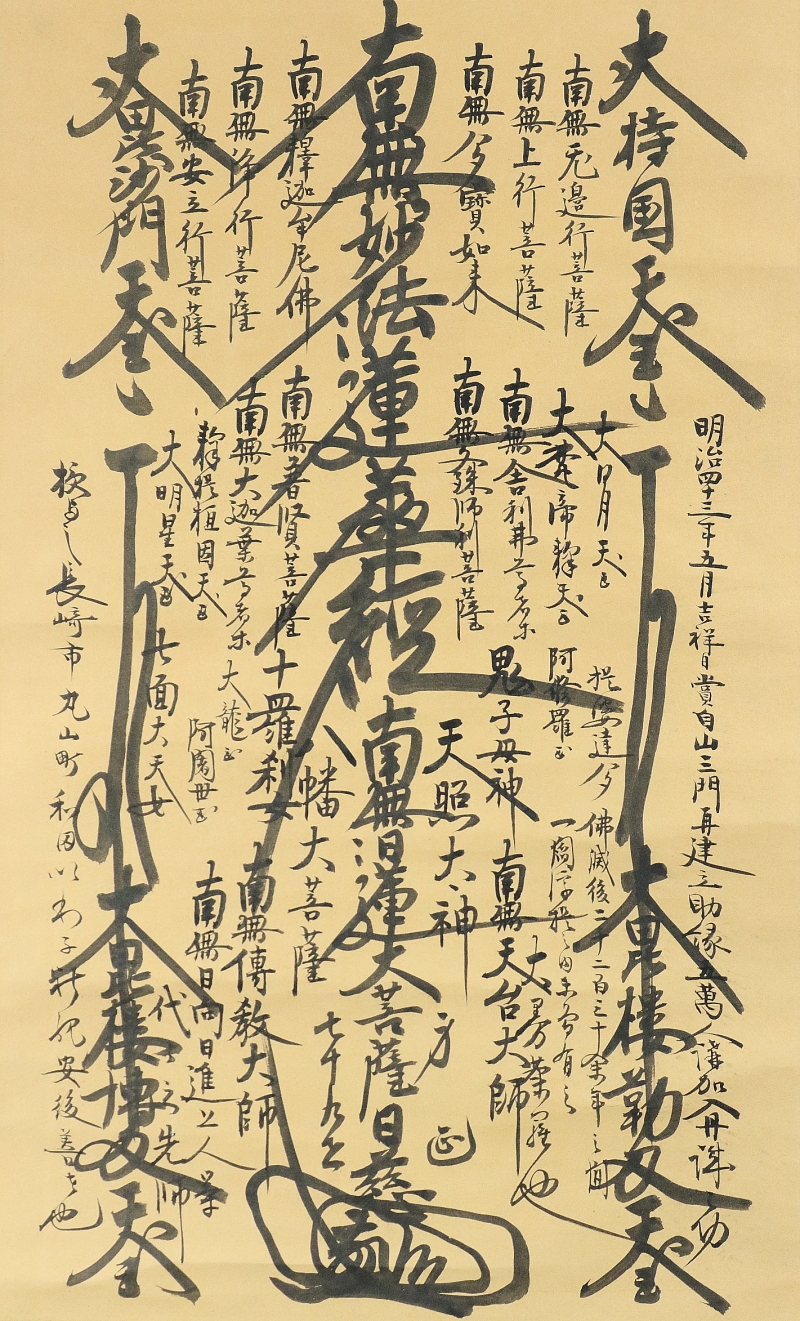 明治四十三年五月吉祥日賞自山三門再建立助縁五萬人講加入丹誠之功
大持国天王
大毘楼勒叉天王
南無无邊行菩薩
南無上行菩薩
南無多寶如来
大日月天王
大梵帝釋天王
南無舎利弗尊者
南無文殊師利菩薩
提婆達多
阿修羅王
鬼子母神
天照大神
佛滅後二千二百三十余年之間
一閻浮提之内未曾有之
大曼荼羅也
南無天台大師
南無妙法蓮華経
南無日蓮大菩薩
日慈
七十九世
南無釋迦牟尼佛
南無浄行菩薩
南無安立行菩薩
南無普賢菩薩
南無大迦葉尊者
釋提桓因天王
大明星天王
十羅刹女
大龍王
阿闍世王
七面大天女
八幡大菩薩
南無傳教大師
南無日向日進上人
代々先師
大毘沙門天王
大毘楼博叉天王
授与之長崎市丸山町和田
安後善